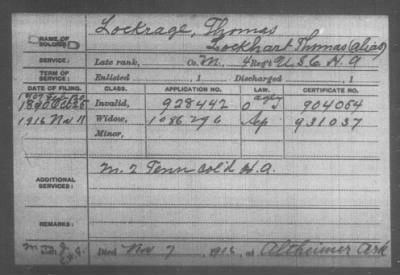 NAME OF SOLDIER: Lockrage, Thomas
Lockhart Thomas (alias)
SERVICE: Late rank, Co. M, 4 Reg't U.S.C.H.A.
TERM OF SERVICE: Enlisted , 1 Discharged , 1
DATE OF FILING. CLASS. APPLICATION NO. LAW. CERTIFICATE NO.
1890 Invalid, 928442 904054
1916 Nov 11 Widow, 1086296 Sep 931037
Minor,
ADDITIONAL SERVICES: M. 2 Tenn Col'd H.A.
REMARKS:
Died Nov 7, 1916, at Altheimer Ark